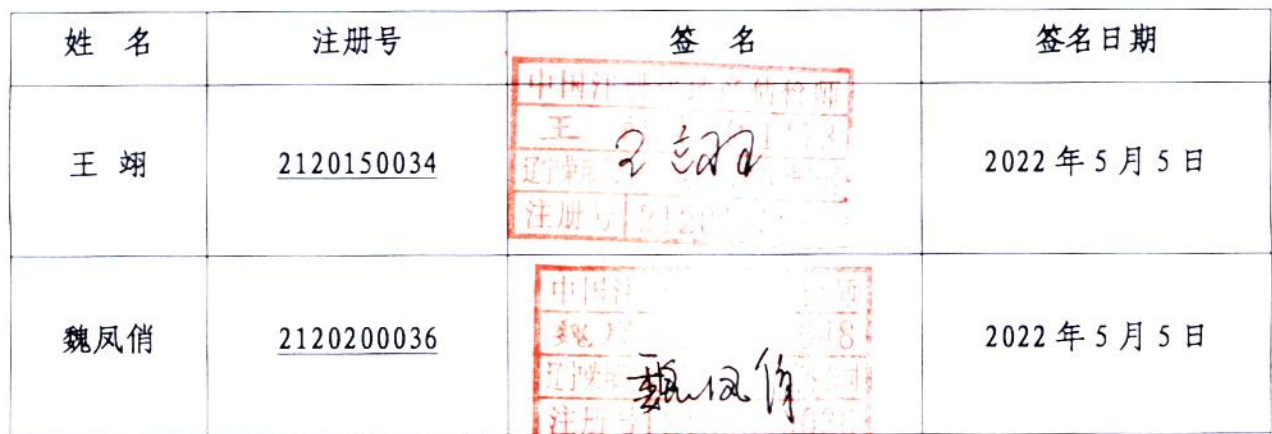 姓 名 注册号 签 名 签名日期
王 翊 2120150034 王翊 2022年5月5日
注册号
魏凤俏 2120200036 魏凤俏 2022年5月5日
注册号